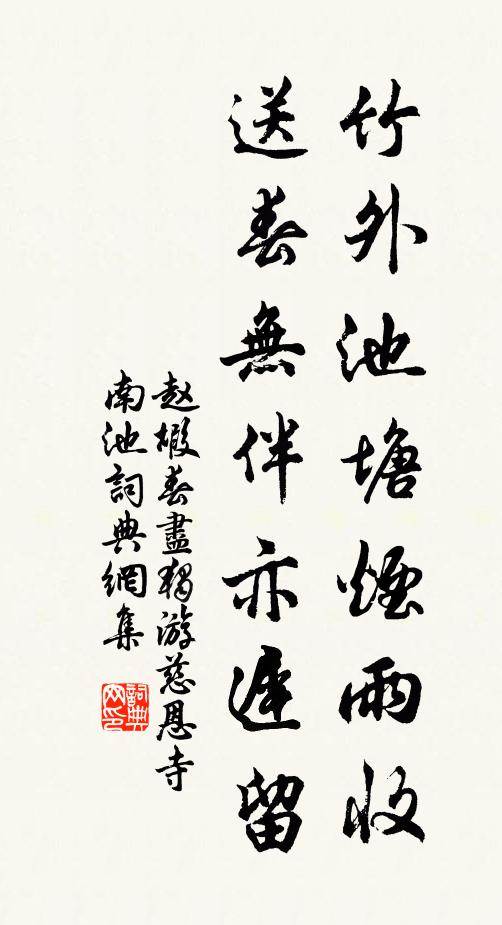 竹外池塘煙雨收
送春無伴亦遲留
赵嘏春盡獨游慈恩寺
南池詞典網集
詞典網印